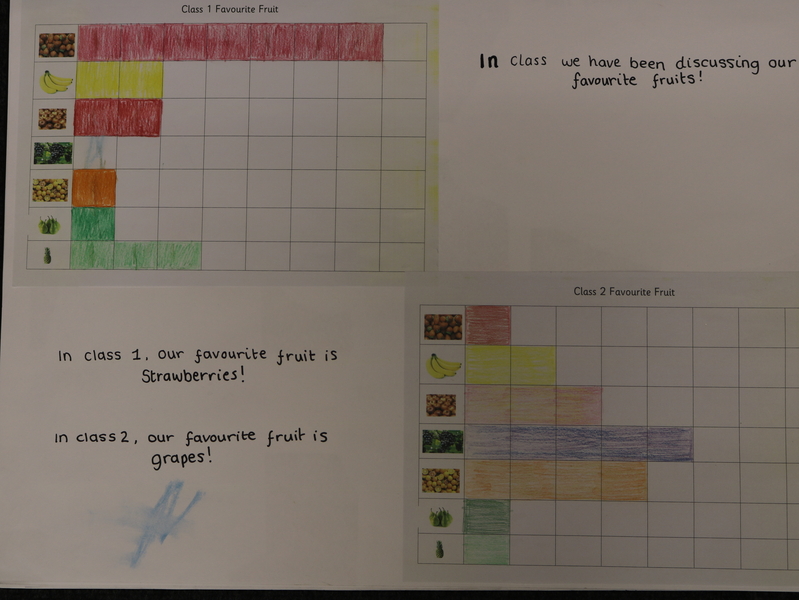 Class 1 Favourite Fruit
In class we have been discussing our
favourite fruits!
In class 1, our favourite fruit is
Strawberries!
In class 2, our favourite fruit is
grapes!
Class 2 Favourite Fruit